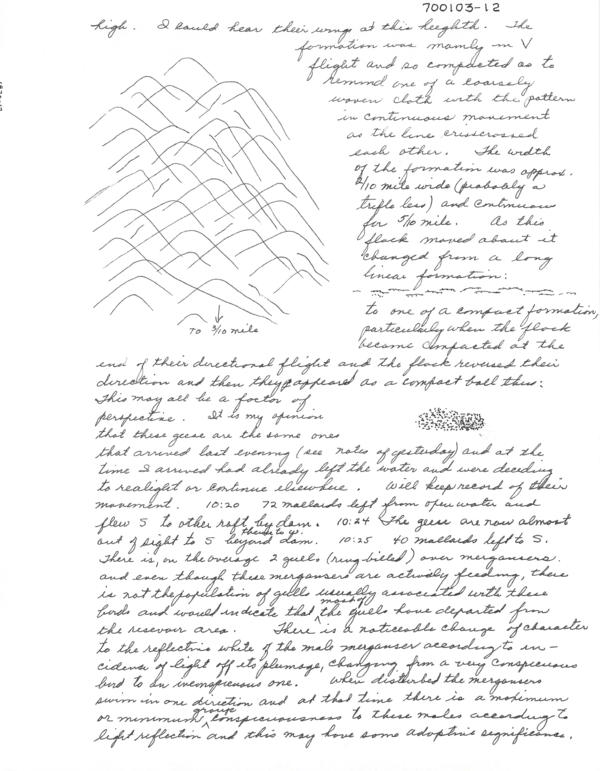 700103-12
high. I could hear their wings at this heeghth. The
formation was mainly in V
flight and so compacted as to
remind one of a coarsely
woven cloth with the pattern
in continuous movement
as the line crisscrossed
each other. The width
of the formation was approx.
2/10 mile wide (probably a
trifle less) and continuous
for 5/10 mile. As this
flock moved about it
changed from a long
linear formation:
to 3/10 mile
to one of a compact formation,
particularly when the flock
became compacted at the
end of their directional flight and the flock reversed their
direction and then they appeared as a compact ball thus:
This may all be a factor of
perspective. It is my opinion
that these geese are the same ones
that arrived last evening (see notes of yesturday) and at the
time I arrived had already left the water and were deciding
to realight or continue elsewhere. Will keep record of their
movement. 10:20 72 mallards left from open water and
flew S to other raft by dam. 10:24 The geese are now almost
out of sight to S beyond dam. 10:25 40 mallards left to S.
There is, on the average 2 gulls (ring-billed) over mergansers
and even though these mergansers are actively feeding, there
is not the population of gulls usually associated with these
birds and would indicate that most of the gulls have departed from
the resevoir area. There is a noticeable change of character
to the reflective white of the male merganser according to in-
cidence of light off its plumage, changing from a very conspicuous
bird to an inconspicuous one. When disturbed the mergansers
swim in one direction and at that time there is a maximum
or minimum group conspicuousness to these males according to
light reflection and this may have some adaptive significance.